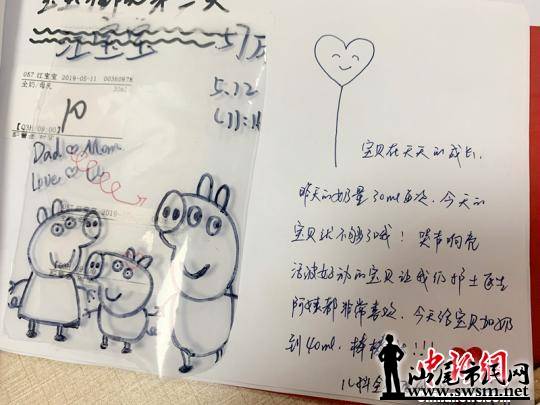 汪宝宝
5.12
087 汪宝宝 2019-05-11 00360878
全奶/每天
30ml
【Q3H (09:00)】
10
Dad ♡ Mom
Love ♡ U
2019-
宝贝在天天的成长，
昨天的奶量30ml每次，今天的
宝贝就不够30哦！哭声响亮
活泼好动的宝贝让我们护士医生
阿姨都非常喜欢，今天给宝贝加奶
到40ml，棒棒！！！
儿科全
中新网
汕尾市民网
www.swsm.net